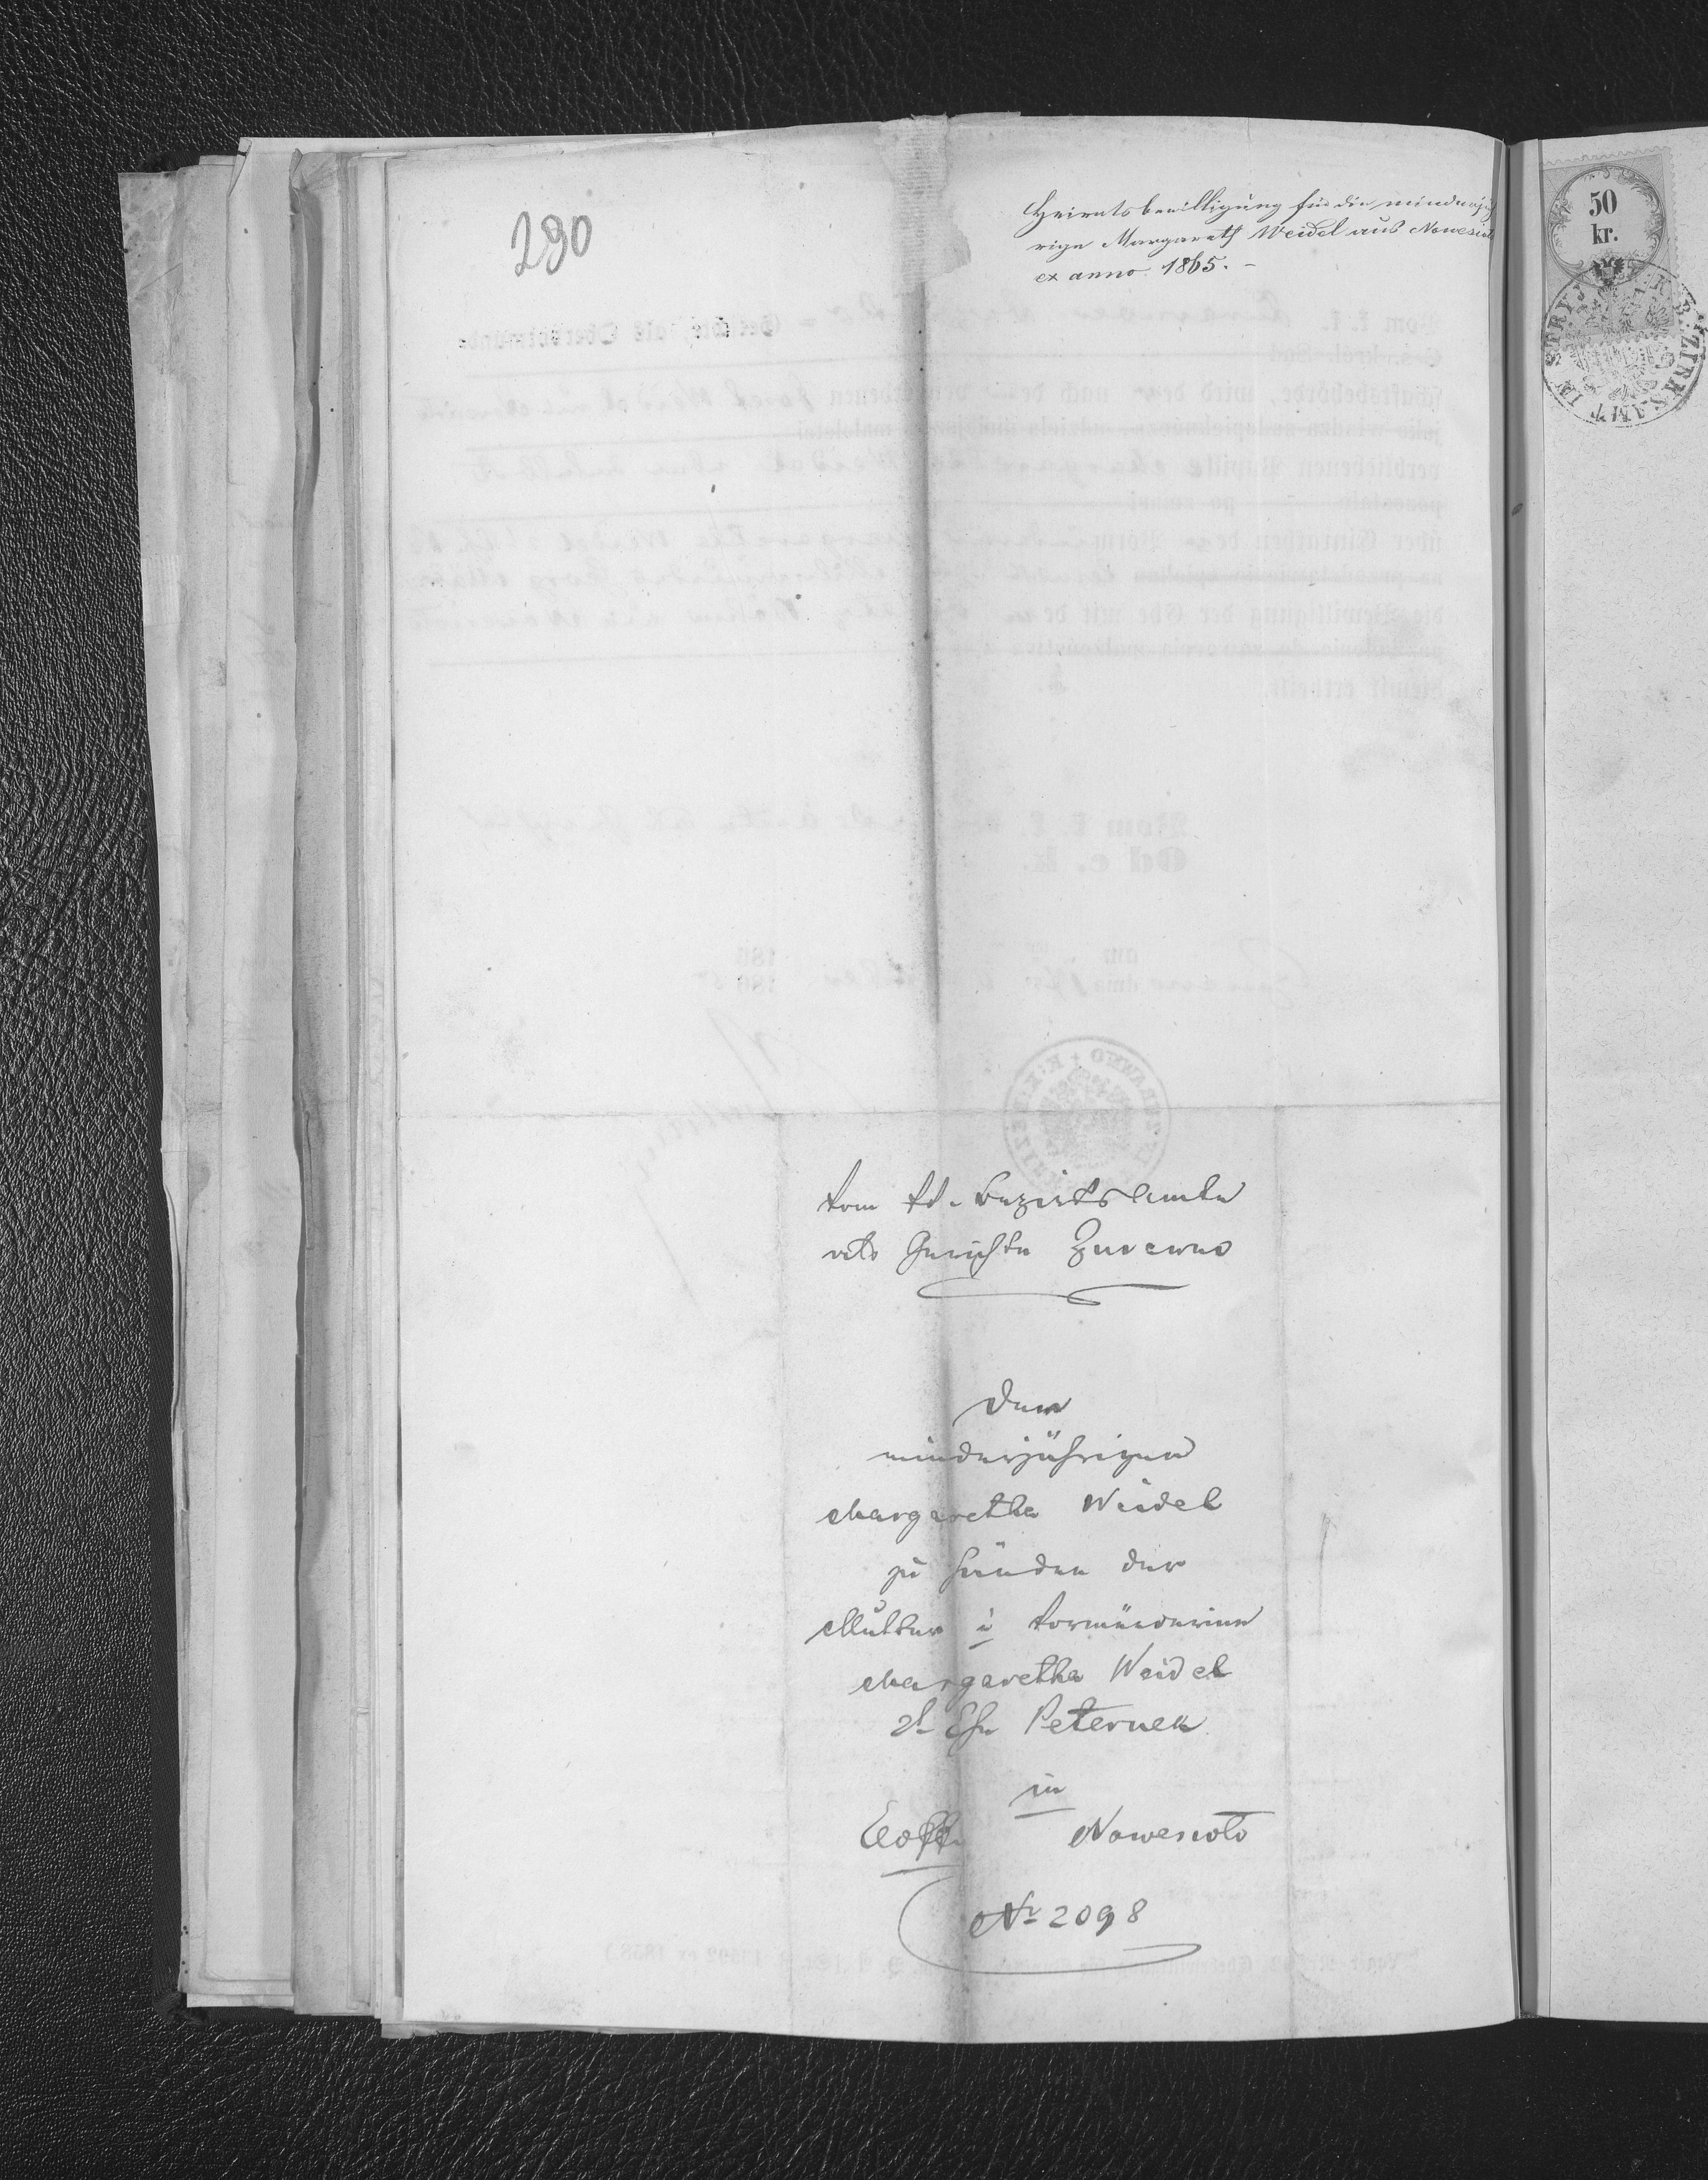 290
Heiratsbewilligung für die minderjäh
rige Margareth Weidel aus Nowesiolo
ex anno 1865. –
50
kr.
K. K. BEZIRKSAMT IN STRYJ
Vom kk. Bezirksamte
als Gerichte Zurawno
Der
minderjährigen
Margaretha Weidel
zu Händen der
Mutter u Vormünderinn
Margaretha Weidel
2t Ehe Peternek
in
Nowesioło
Nr 2098